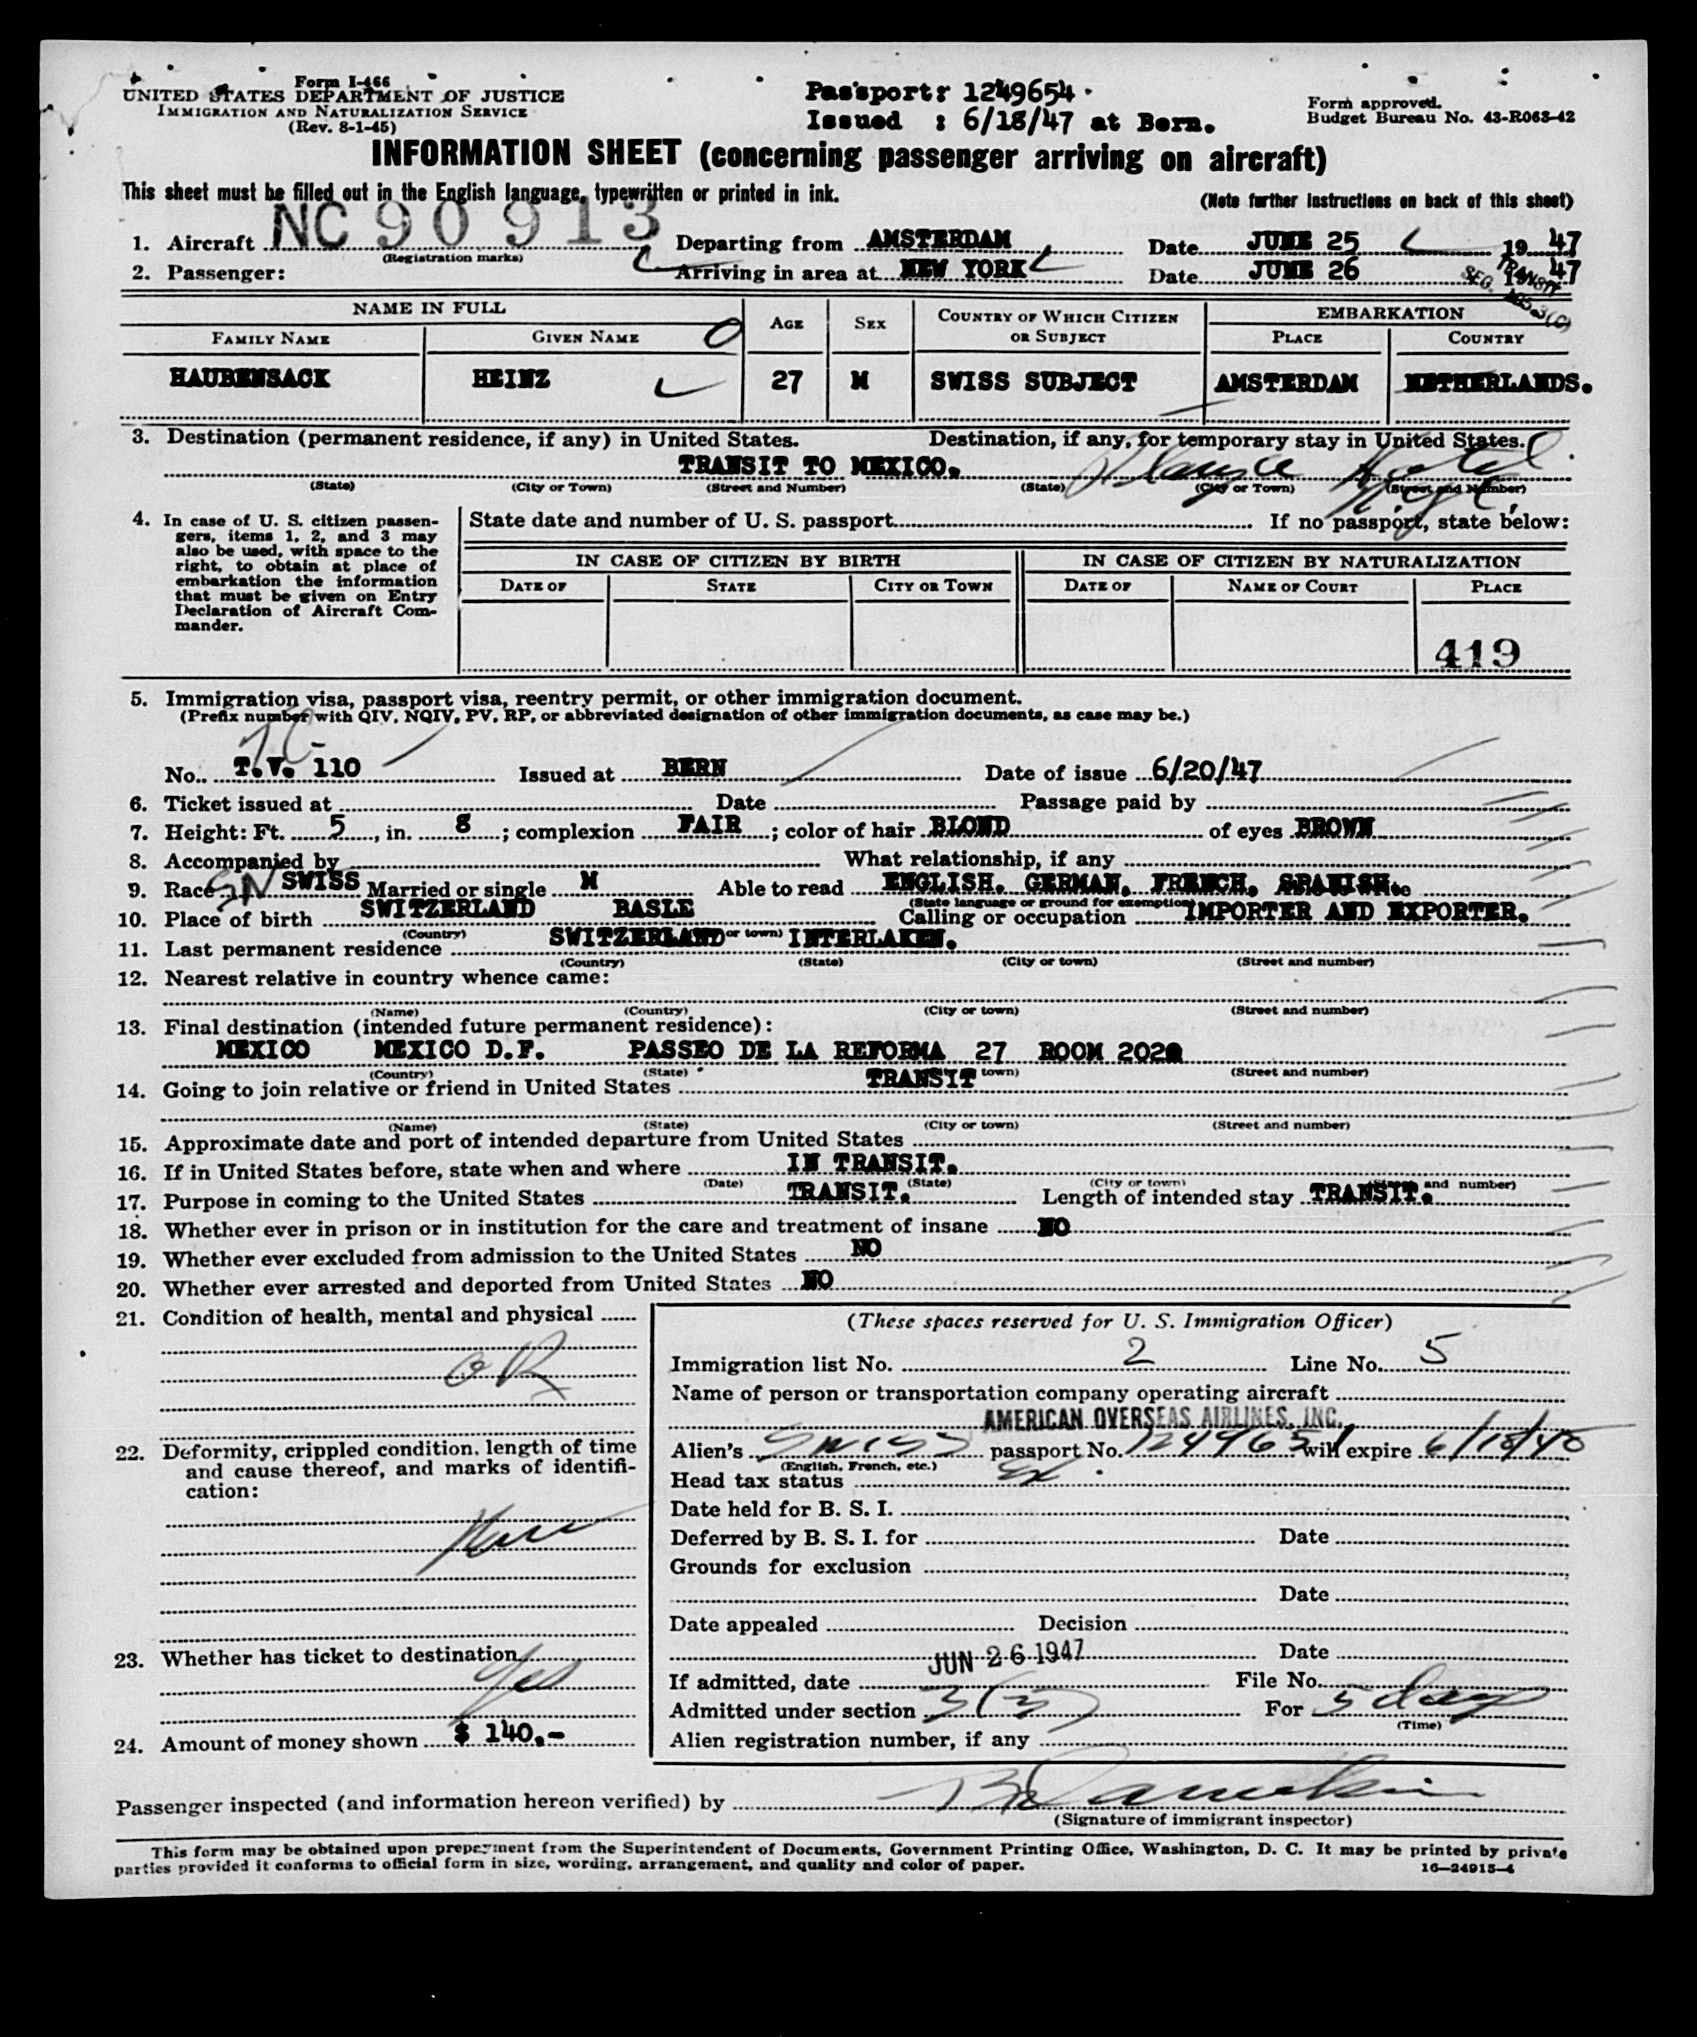 Form I-466
UNITED STATES DEPARTMENT OF JUSTICE
IMMIGRATION AND NATURALIZATION SERVICE
(Rev. 8-1-45)
Passport: 1249654.
Issued : 6/18/47 at Bern.
Form approved.
Budget Bureau No. 43-R063-42
INFORMATION SHEET (concerning passenger arriving on aircraft)
This sheet must be filled out in the English language, typewritten or printed in ink.
(Note further instructions on back of this sheet)
1. Aircraft NC 90913 Departing from AMSTERDAM Date JUNE 25 1947
(Registration marks)
2. Passenger: Arriving in area at NEW YORK Date JUNE 26 1947
TRANSIT
SEC.
NAME IN FULL AGE SEX COUNTRY OF WHICH CITIZEN OR SUBJECT EMBARKATION
FAMILY NAME GIVEN NAME PLACE COUNTRY
HAUBENSACK HEINZ 27 M SWISS SUBJECT AMSTERDAM NETHERLANDS.
3. Destination (permanent residence, if any) in United States. Destination, if any, for temporary stay in United States.
TRANSIT TO MEXICO. Hotel
(State) (City or Town) (Street and Number) (State) (City or Town) (Street and Number)
4. In case of U. S. citizen passen-
gers, items 1, 2, and 3 may
also be used, with space to the
right, to obtain at place of
embarkation the information
that must be given on Entry
Declaration of Aircraft Com-
mander.
State date and number of U. S. passport If no passport, state below:
IN CASE OF CITIZEN BY BIRTH IN CASE OF CITIZEN BY NATURALIZATION
DATE OF STATE CITY OR TOWN DATE OF NAME OF COURT PLACE
419
5. Immigration visa, passport visa, reentry permit, or other immigration document.
(Prefix number with QIV, NQIV, PV, RP, or abbreviated designation of other immigration documents, as case may be.)
No. T.V. 110 Issued at BERN Date of issue 6/20/47
6. Ticket issued at Date Passage paid by
7. Height: Ft. 5, in. 8; complexion FAIR; color of hair BLOND of eyes BROWN
8. Accompanied by What relationship, if any
9. Race SWISS Married or single M Able to read ENGLISH. GERMAN. FRENCH. SPANISH.
(State language or ground for exemption)
10. Place of birth SWITZERLAND BASLE Calling or occupation IMPORTER AND EXPORTER.
(Country) or town)
11. Last permanent residence SWITZERLAND INTERLAKEN.
(Country) (State) (City or town) (Street and number)
12. Nearest relative in country whence came:
(Name) (Country) (City or town) (Street and number)
13. Final destination (intended future permanent residence):
MEXICO MEXICO D.F. PASSEO DE LA REFORMA 27 ROOM 202
(Country) (State) town) (Street and number)
14. Going to join relative or friend in United States TRANSIT
(Name) (State) (City or town) (Street and number)
15. Approximate date and port of intended departure from United States
16. If in United States before, state when and where IN TRANSIT.
(Date) (State) (City or town) and number)
17. Purpose in coming to the United States TRANSIT. Length of intended stay TRANSIT.
18. Whether ever in prison or in institution for the care and treatment of insane NO
19. Whether ever excluded from admission to the United States NO
20. Whether ever arrested and deported from United States NO
21. Condition of health, mental and physical
OK
22. Deformity, crippled condition, length of time
and cause thereof, and marks of identifi-
cation:
None
23. Whether has ticket to destination
Yes
24. Amount of money shown $ 140.-
(These spaces reserved for U. S. Immigration Officer)
Immigration list No. 2 Line No. 5
Name of person or transportation company operating aircraft
AMERICAN OVERSEAS AIRLINES, INC.
Alien's Swiss passport No. 1249654 will expire
(English, French, etc.)
Head tax status Ex
Date held for B. S. I.
Deferred by B. S. I. for Date
Grounds for exclusion
Date
Date appealed Decision
Date
If admitted, date JUN 26 1947 File No.
Admitted under section 3(3) For 5 days
(Time)
Alien registration number, if any
Passenger inspected (and information hereon verified) by
(Signature of immigrant inspector)
This form may be obtained upon prepayment from the Superintendent of Documents, Government Printing Office, Washington, D. C. It may be printed by private
parties provided it conforms to official form in size, wording, arrangement, and quality and color of paper.
16-24915-4